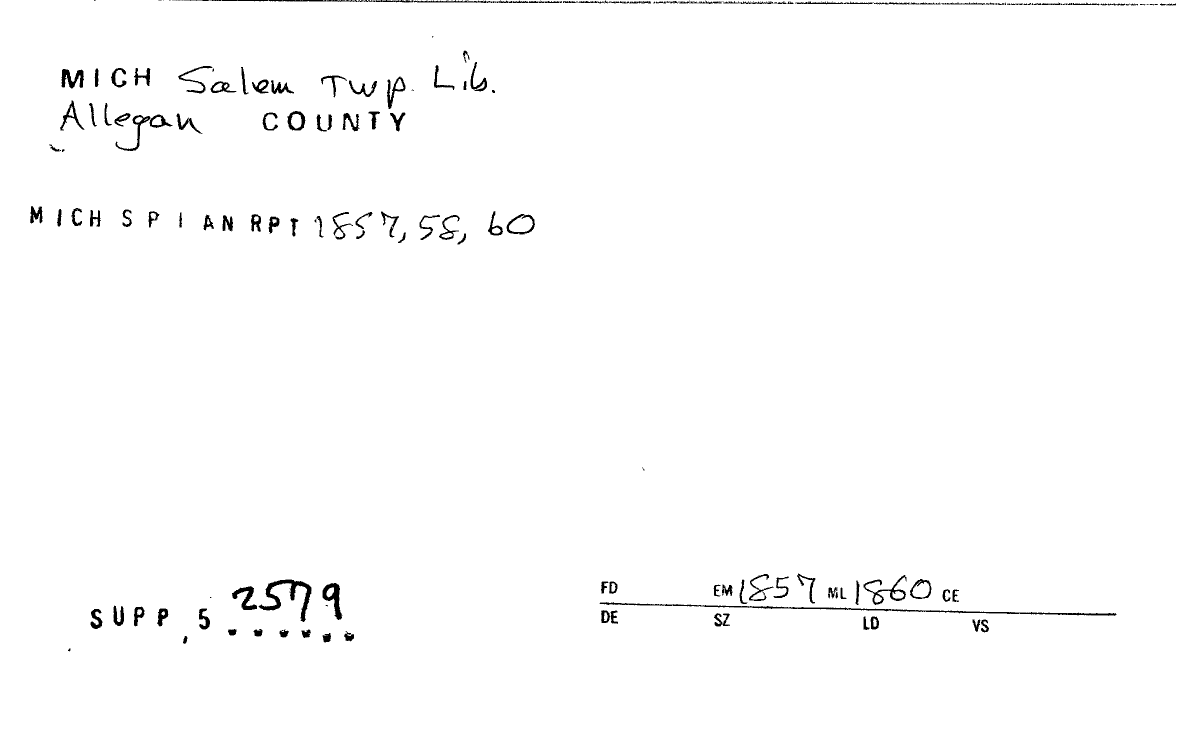 MICH Salem Twp. Lib.
Allegan COUNTY
MICH S P I AN RPT 1857, 58, 60
SUPP, 5 2579
FD EM 1857 ML 1860 CE
DE SZ LD VS